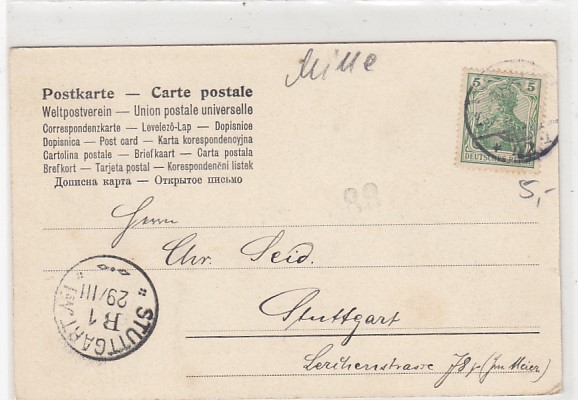 Mille
Postkarte — Carte postale
Weltpostverein — Union postale universelle
Correspondenzkarte — Levelező-Lap — Dopisnice
Dopisnica — Post card — Karta korespondencyjna
Cartolina postale — Briefkaart — Carta postala
Brefkort — Tarjeta postal — Korespondenční listek
Дописна карта — Открытое письмо
5 5
DEUTSCHES REICH
5,-
Herrn
Chr. Seid.
Stuttgart
Lerchenstrasse 78 p (Im Meier)
STUTTGART
B 1
29/III